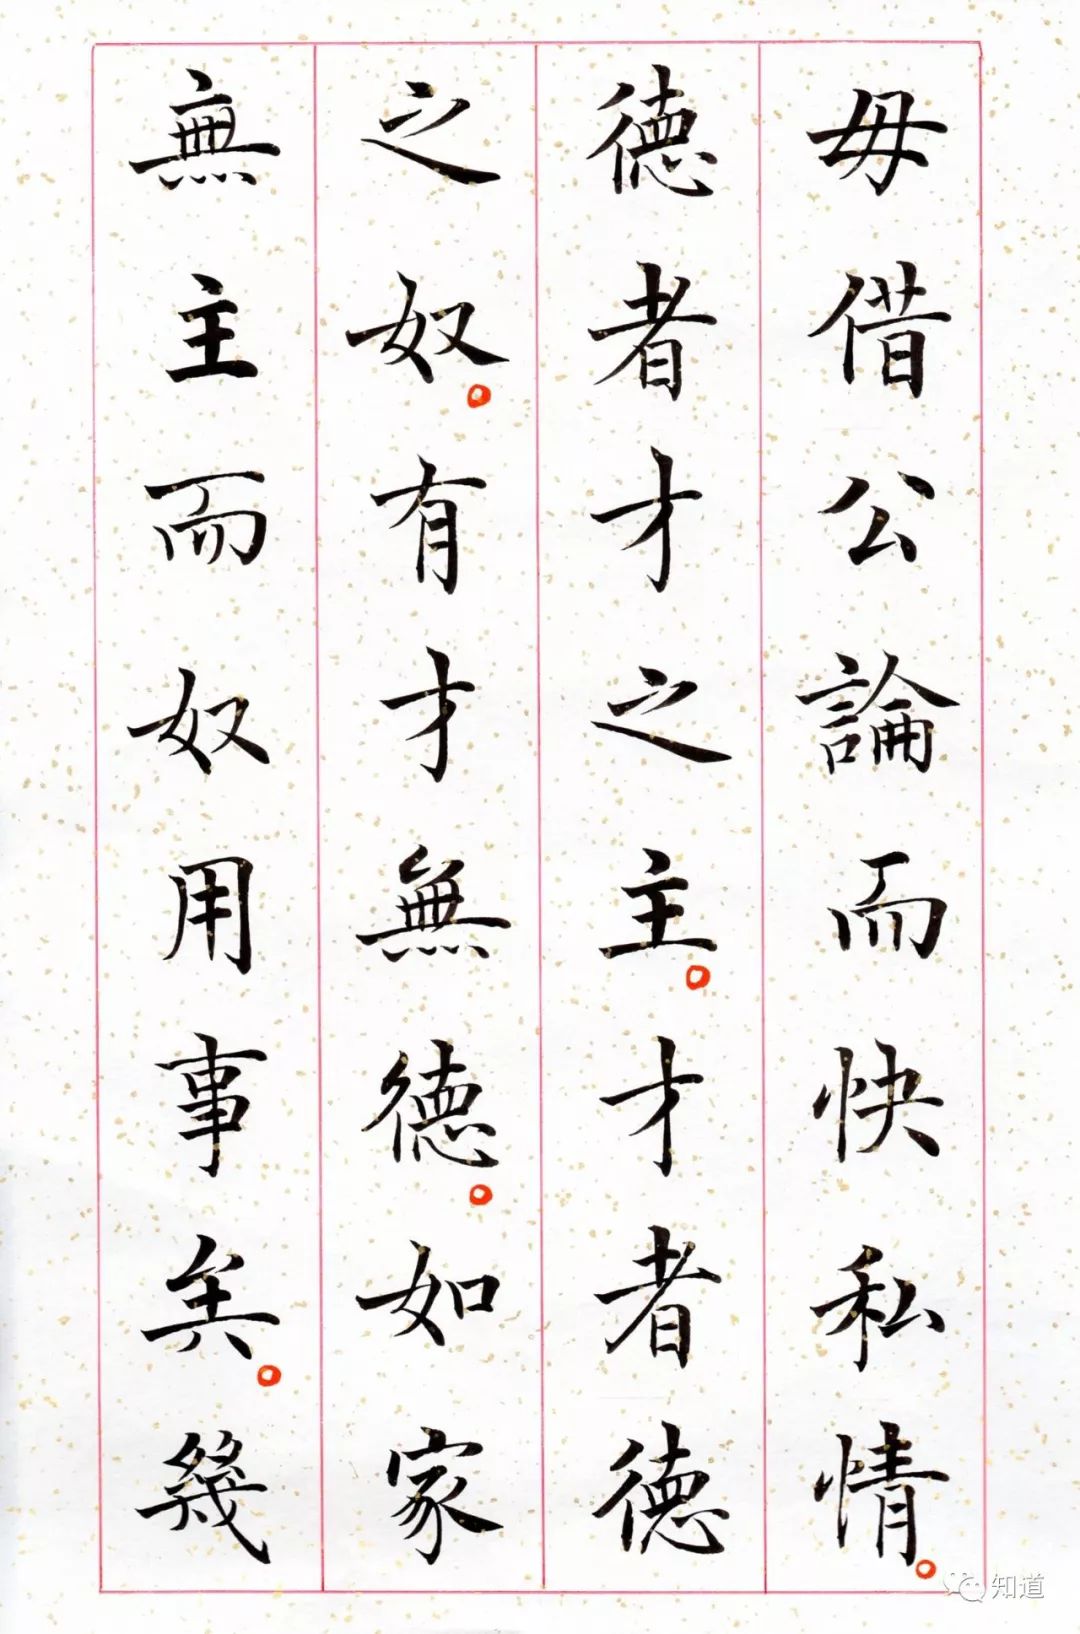 毋借公論而快私情。
德者才之主。才者德
之奴。有才無德。如家
無主而奴用事矣。幾
知道